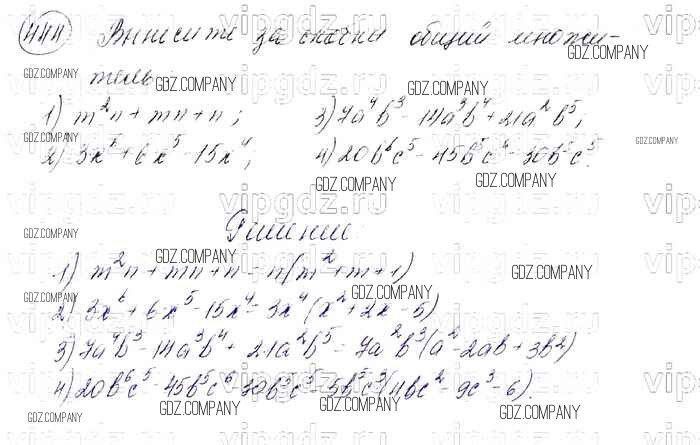 444 Вынесите за скобки общий множи-
тель
1) m²n + mn + n; 3) 7a⁴b³ - 14a³b⁴ + 21a²b⁵;
2) 3x⁶ + 6x⁵ - 15x⁴; 4) 20b⁶c⁵ - 45b⁵c⁶ - 30b⁵c³.
Решение
1) m²n + mn + n = n(m² + m + 1)
2) 3x⁶ + 6x⁵ - 15x⁴ = 3x⁴(x² + 2x - 5)
3) 7a⁴b³ - 14a³b⁴ + 21a²b⁵ = 7a²b³(a² - 2ab + 3b²)
4) 20b⁶c⁵ - 45b⁵c⁶ - 30b⁵c³ = 5b⁵c³(4bc² - 9c³ - 6).
GDZ.COMPANY
vipgdz.ru